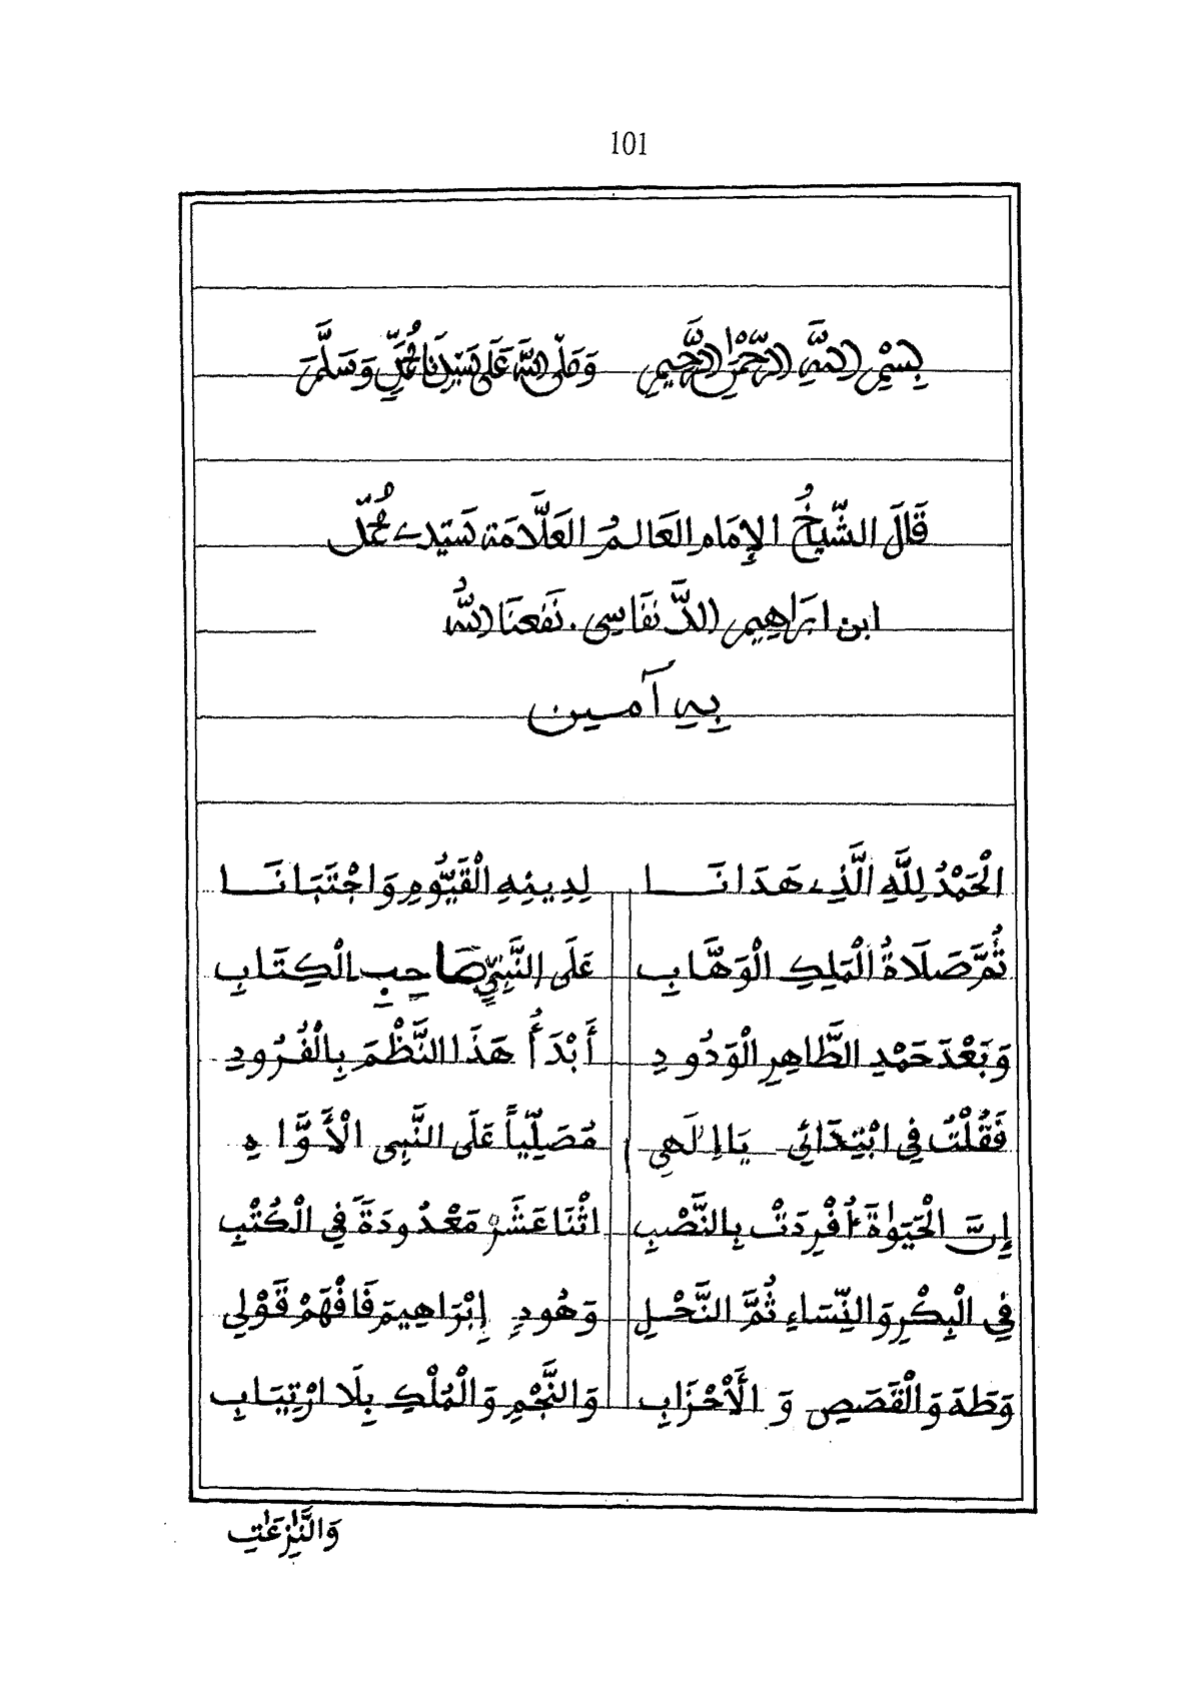 101
بِسْمِ اللَّهِ الرَّحْمٰنِ الرَّحِيمِ وَصَلَّى اللَّهُ عَلَى سَيِّدِنَا مُحَمَّدٍ وَسَلَّمَ
قَالَ الشَّيْخُ الإِمَام العَالِمُ العَلَّامَة سَيِّدِي مُحَمَّدُ
ابن ابَراهِيم الدَّنفَاسِي. نَفَعَنَا اللَّهُ
بِهِ آمين
الْحَمْدُ لِلَّهِ الَّذِي هَدَانَا لِدِينِهِ الْقَيُّومِ وَاجْتَبَانَا
ثُمَّ صَلَاةُ الْمَلِكِ الْوَهَّابِ عَلَى النَّبِيِّ صَاحِبِ الْكِتَابِ
وَبَعْدَ حَمْدِ الطَّاهِرِ الْوَدُودِ أَبْدَأُ هَذَا النَّظْمَ بِالْفُرُودِ
فَقُلْتُ فِي ابْتِدَائِي يَا إِلَٰهِي مُصَلِّياً عَلَى النَّبِي الْأَوَّاهِ
إِنَّ الْحَيَوٰةَ أُفْرِدَتْ بِالنَّصْبِ اثْنَا عَشَرْ مَعْدُودَةً فِي الْكُتْبِ
فِي الْبِكْرِ وَالنِّسَاءِ ثُمَّ النَّحْلِ وَهُودِ إِبْرَاهِيمَ فَافْهَمْ قَوْلِي
وَطَهَ وَالْقَصَصِ وَ الْأَحْزَابِ وَالنَّجْمِ وَالْمُلْكِ بِلَا ارْتِيَابِ
وَالنَّٰزِعَٰتِ